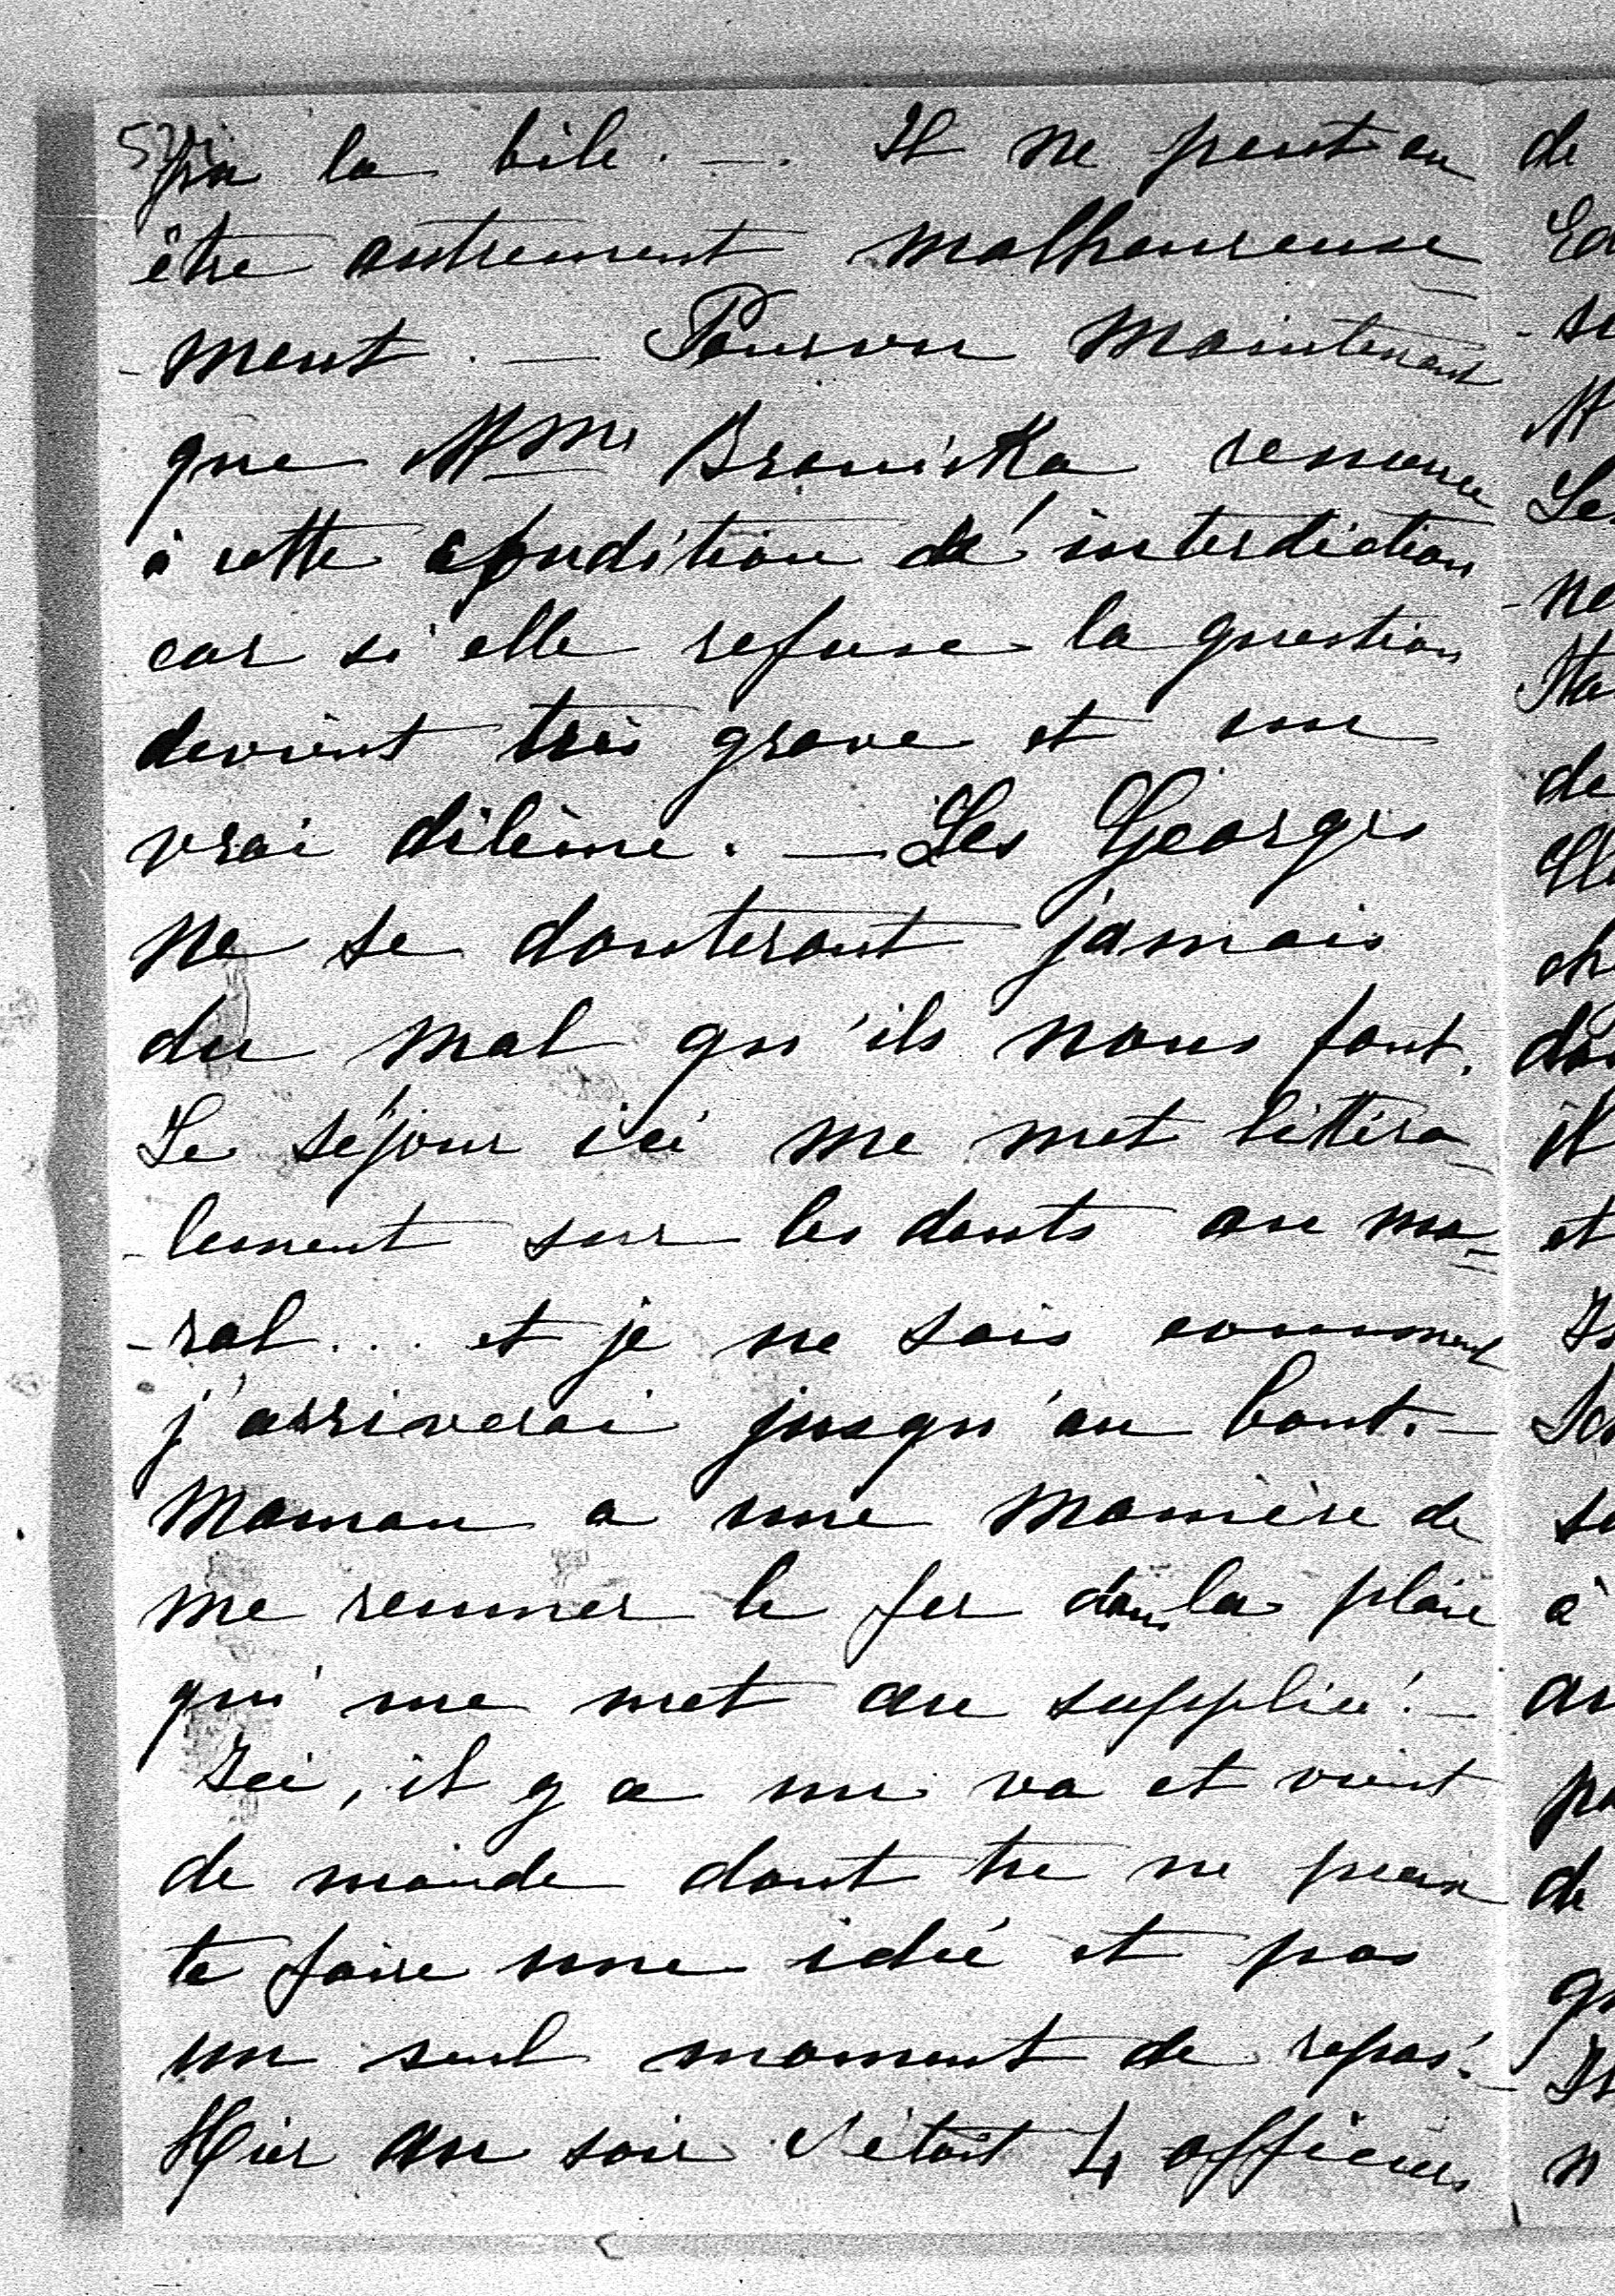 la bile. —. Il ne peut en
être autrement malheureuse
-ment. — Pourvu maintenant
que Mme Branicka renonce
à cette condition d'interdiction
car si elle refuse la question
devient très grave et un
vrai dilème. — Les Georges
ne se douteront jamais
du mal qu'ils nous font.
Le séjour ici me met littéra-
-lement sur les dents au mo-
-ral... et je ne sais comment
j'arriverai jusqu'au bout. —
Maman a une manière de
me remuer le fer dans la plaie
qui me met au supplice! —
Ici, il y a un va et vient
de monde dont tu ne peux
te faire une idée et pas
un seul moment de repos! —
Hier au soir c'était 4 officiers